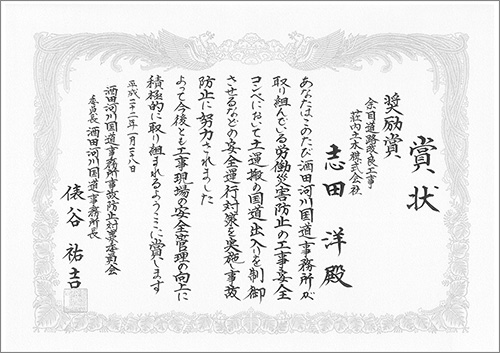 賞状
奨励賞
余目道路改良工事
荘内土木株式会社
志田洋殿
あなたはこのたび酒田河川国道事務所が
取り組んでいる労働災害防止の工事安全
コンペにおいて土運搬の国道出入りを制御
させるなどの安全運行対策を実施し事故
防止に努力されました
よって今後とも工事現場の安全管理の向上に
積極的に取り組まれるようここに賞します
平成二十二年一月二十八日
酒田河川国道事務所事故防止対策委員会
委員長酒田河川国道事務所長
俵谷祐吉